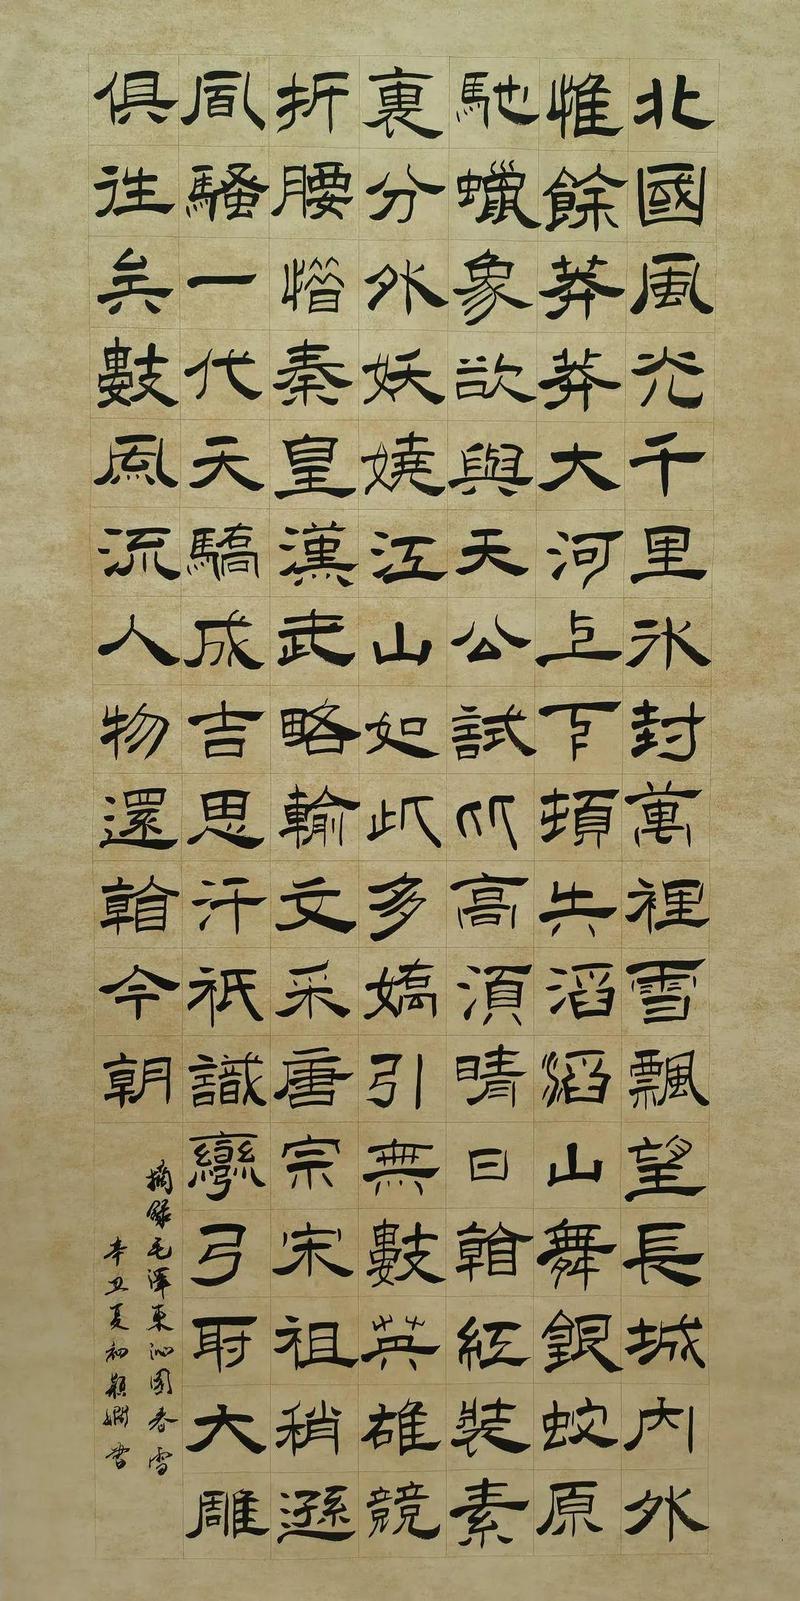 北國風光千里冰封萬裡雪飄望長城內外
惟餘莽莽大河上下頓失滔滔山舞銀蛇原
馳蠟象欲與天公試比高須晴日看紅裝素
裹分外妖嬈江山如此多嬌引無數英雄競
折腰惜秦皇漢武略輸文采唐宗宋祖稍遜
風騷一代天驕成吉思汗祇識彎弓射大雕
俱往矣數風流人物還看今朝
摘錄毛澤東沁園春雪
辛丑夏初穎嫻書